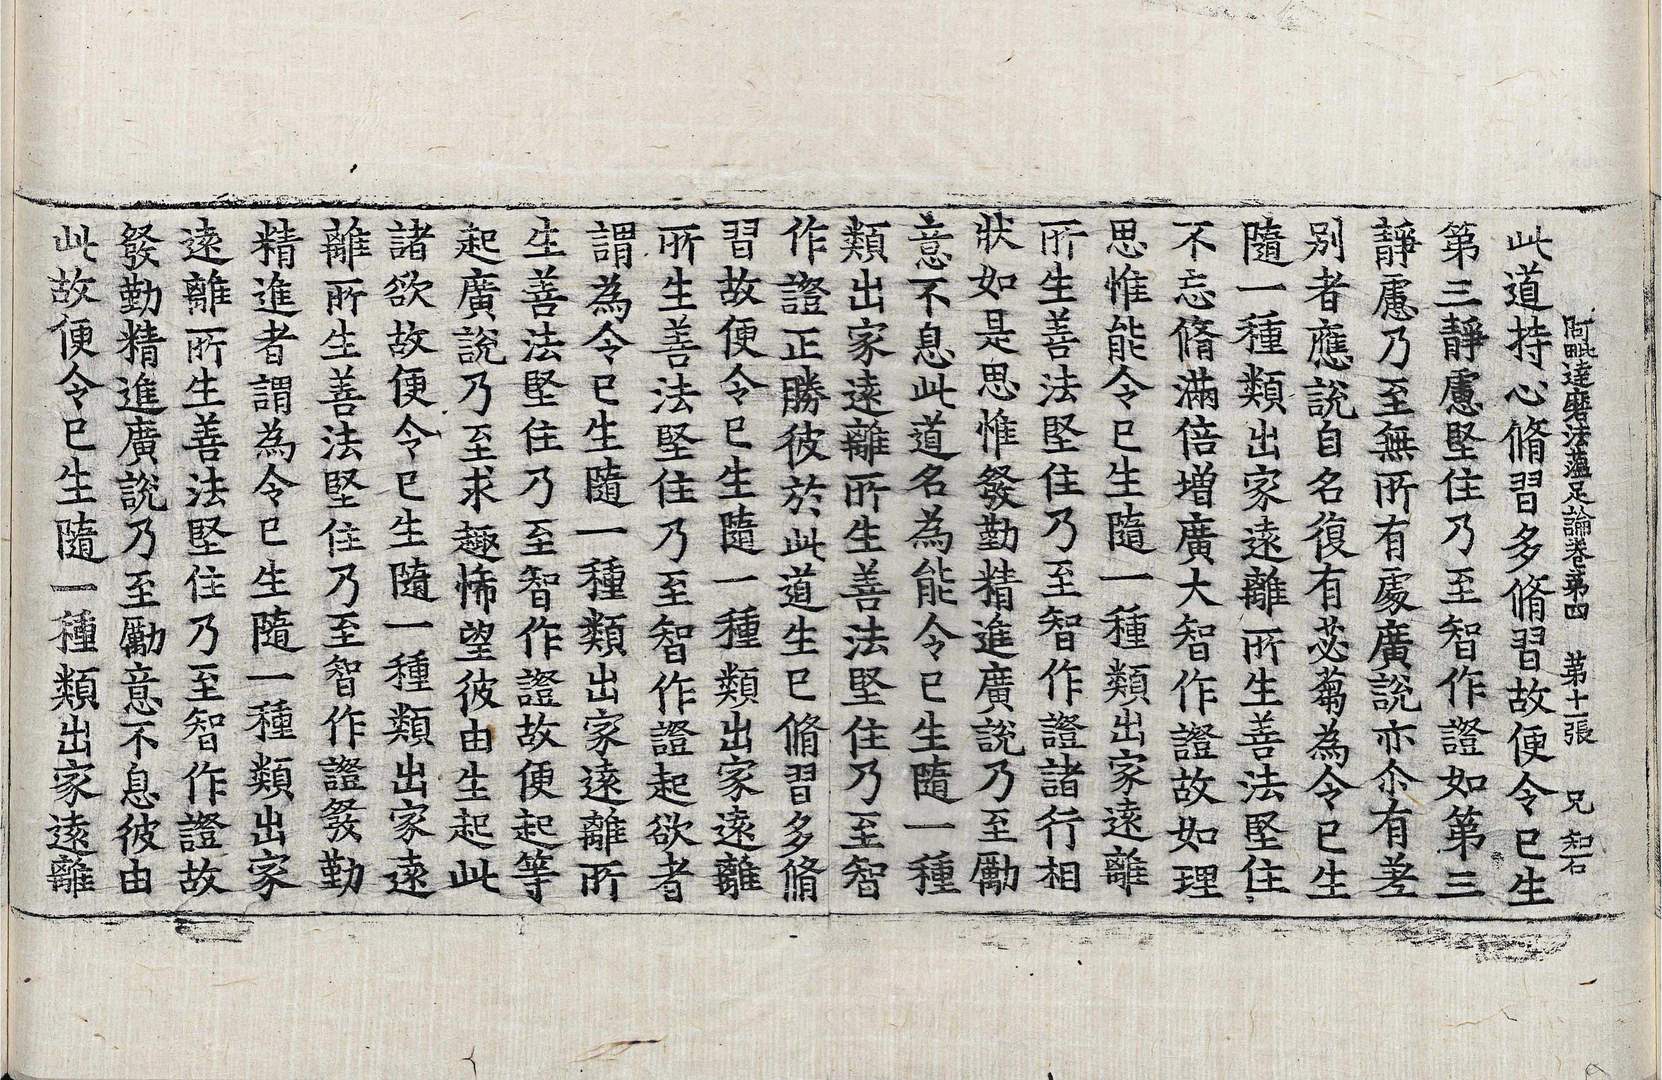 阿毗達磨法蘊足論卷第四　第十一張　兄　知石
此道持心脩習多脩習故便令已生
第三靜慮堅住乃至智作證如第三
靜慮乃至無所有處廣說亦尒有差
別者應說自名復有苾蒭為令已生
隨一種類出家遠離所生善法堅住
不忘脩滿倍增廣大智作證故如理
思惟能令已生隨一種類出家遠離
所生善法堅住乃至智作證諸行相
狀如是思惟發勤精進廣說乃至勵
意不息此道名為能令已生隨一種
類出家遠離所生善法堅住乃至智
作證正勝彼於此道生已脩習多脩
習故便令已生隨一種類出家遠離
所生善法堅住乃至智作證起欲者
謂為令已生隨一種類出家遠離所
生善法堅住乃至智作證故便起等
起廣說乃至求趣悕望彼由生起此
諸欲故便令已生隨一種類出家遠
離所生善法堅住乃至智作證發勤
精進者謂為令已生隨一種類出家
遠離所生善法堅住乃至智作證故
發勤精進廣說乃至勵意不息彼由
此故便令已生隨一種類出家遠離